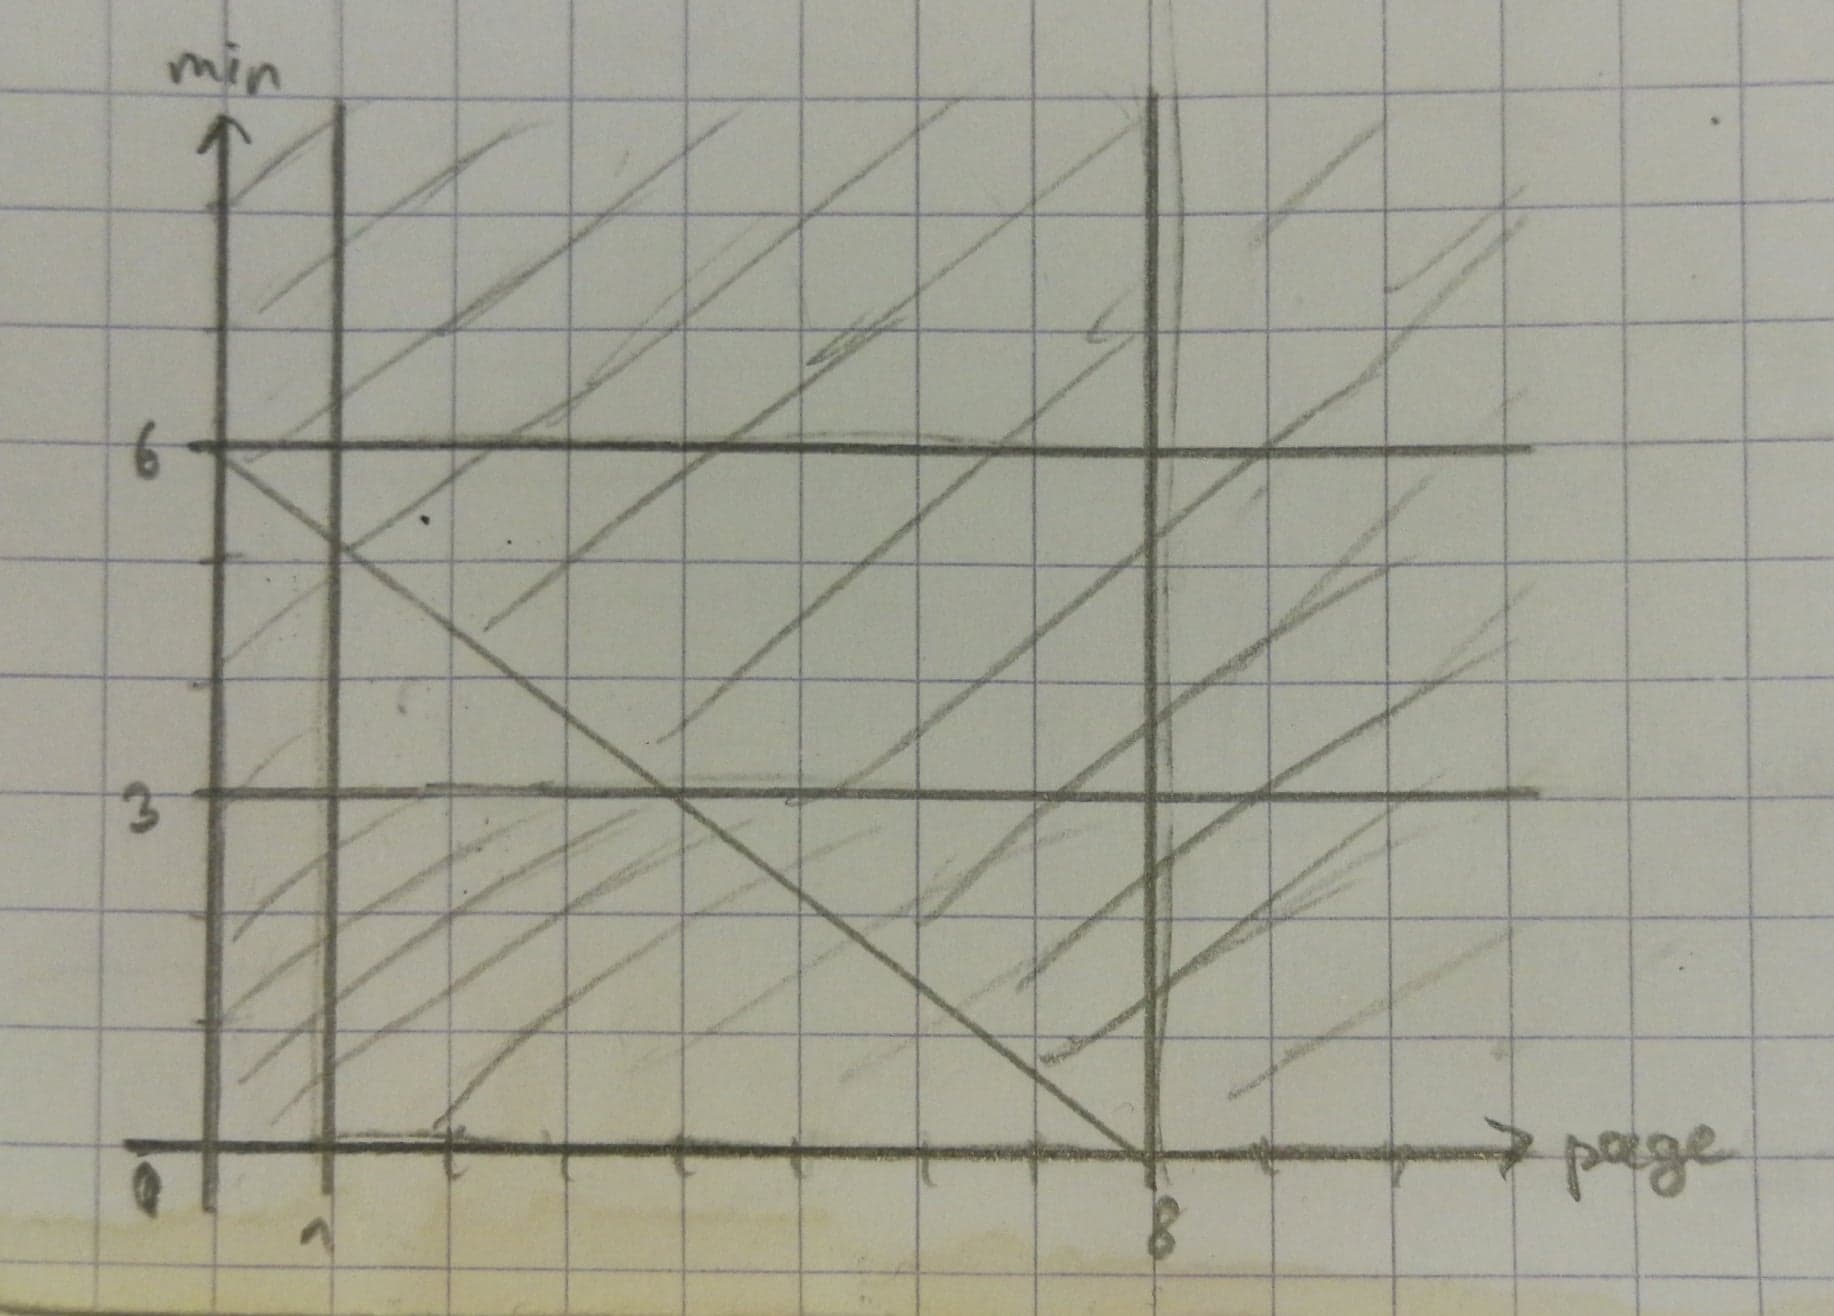 min
6
3
0
1
8
page